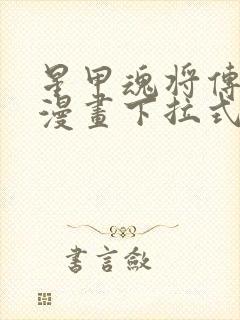 星甲魂将傳
漫畫下拉式
書言斂